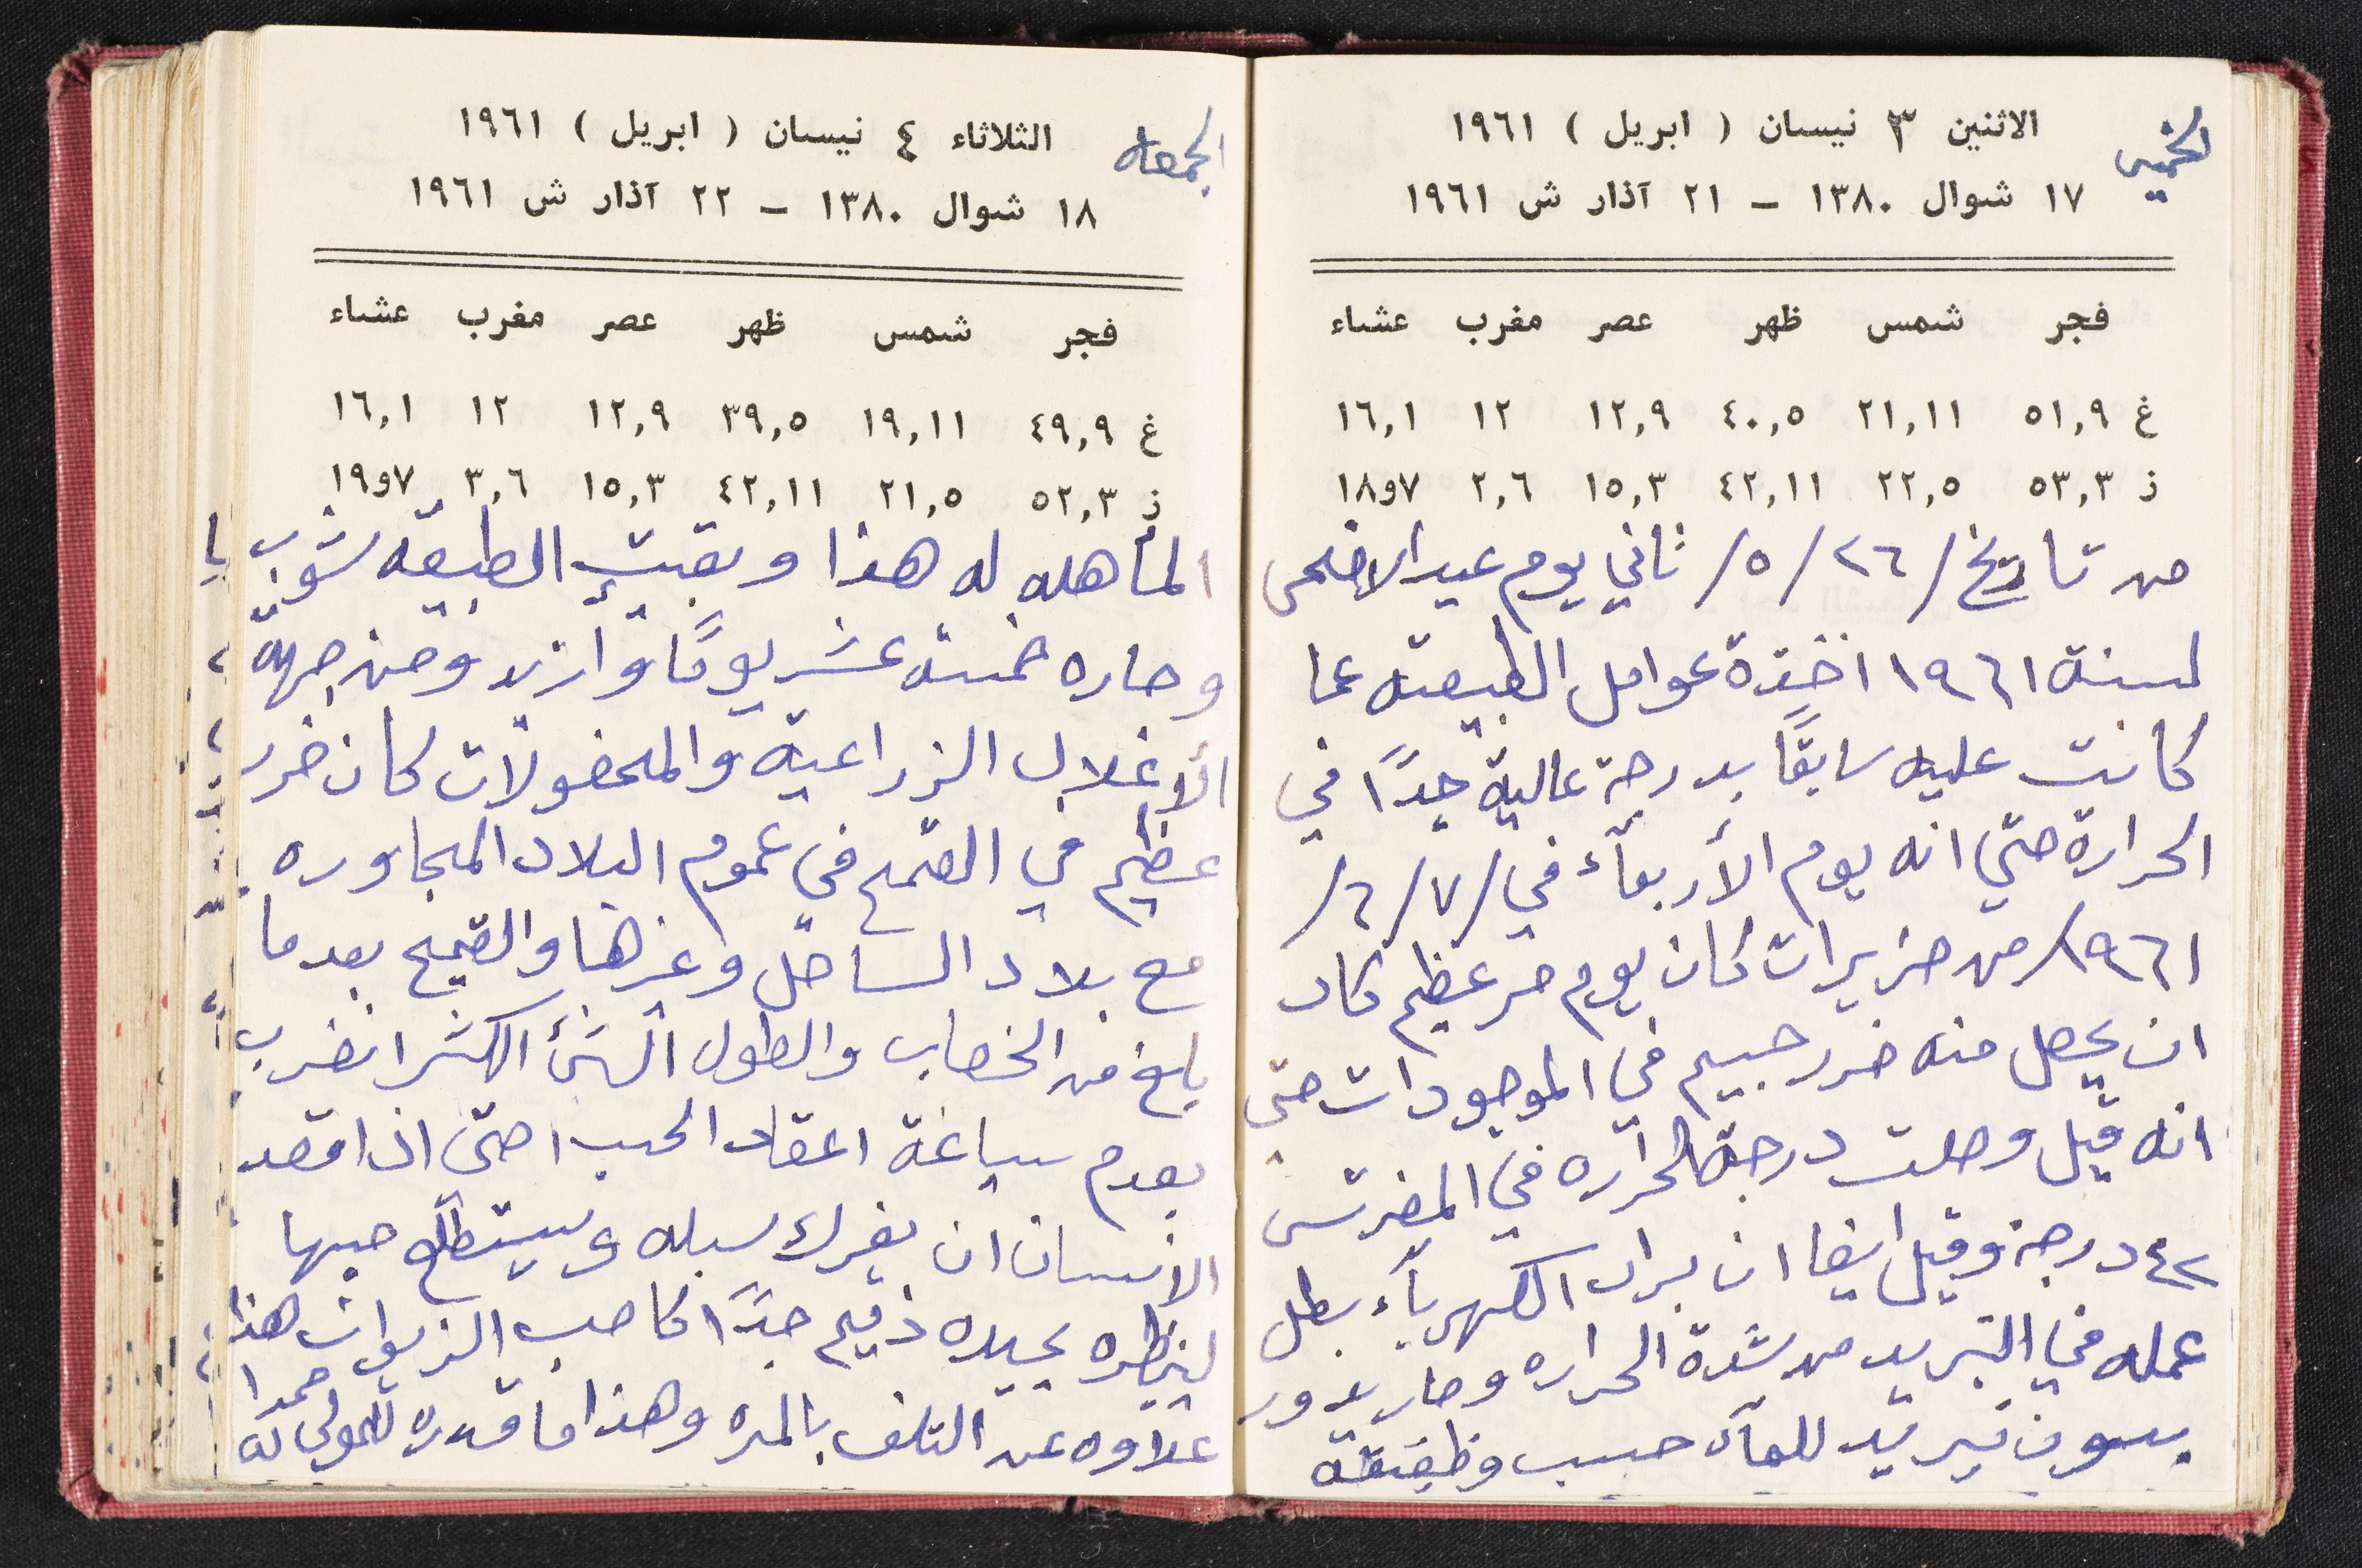 الخميس
الاثنين ٣ نيسان ( ابريل ) ١٩٦١
١٧ شوال ١٣٨٠ – ٢١ آذار ش ١٩٦١
فجر شمس ظهر عصر مغرب عشاء
غ ٥١,٩ ٢١,١١ ٤٠,٥ ١٢,٩ ١٢ ١٦,١
ز ٥٣,٣ ٢٢,٥ ٤٢,١١ ١٥,٣ ٢,٦ ٧و١٨
من تاريخ /٢٦ /٥/ ثاني يوم عيد الاضحى
لسنة ١٩٦١ اخذة عوامل الطبيعته عما
كانت عليه سابقًا بدرجة عالية جدًا في
الحرارة حتي انه يوم الأربعآء في /٧ /٦/
١٩٦١/ من حزيران كان يوم حر عظيم كاد
ان يحصل منه ضرر جسيم في الموجودات حتى
انه قيل وصلت درجة الحراره في المفرتس
٤٢ درجة وقيل ايضا ان براد الكهربآء بطل
عمله في التبريد من شدة الحراره وصار يدور
بدون تبريد للمآء حسب وظيفته
الجمعه
الثلاثاء ٤ نيسان ( ابريل ) ١٩٦١
١٨ شوال ١٣٨٠ – ٢٢ آذار ش ١٩٦١
فجر شمس ظهر عصر مغرب عشاء
غ ٤٩,٩ ١٩,١١ ٣٩,٥ ١٢,٩ ١٢ ١٦,١
ز ٥٢,٣ ٢١,٥ ٤٢,١١ ١٥,٣ ٣,٦ ٧و١٩
المأهله له هذا وبقيت الطبيعه شوب
وحاره خمسة عشر يومًا وازيد ومن جهة
الأغلال الزراعية والمحصولات كان ضرر
عظيم في القمح في عموم البلاد المجاوره
مع بلاد الساحل وغيرها والقمح بعدما
بلغ من الخصاب والطول الشئ الكثير انضرب
بعدم سياغة اعقاد الحب حتى اذا قصد
الانسان ان يفرك سبله ويستطلع حبها
لينظره يجيده ذميم جدًا كاحب الزيوان هذا
علاوه عن التلف بالمره وهذا ما قدره المولى له
حمدا